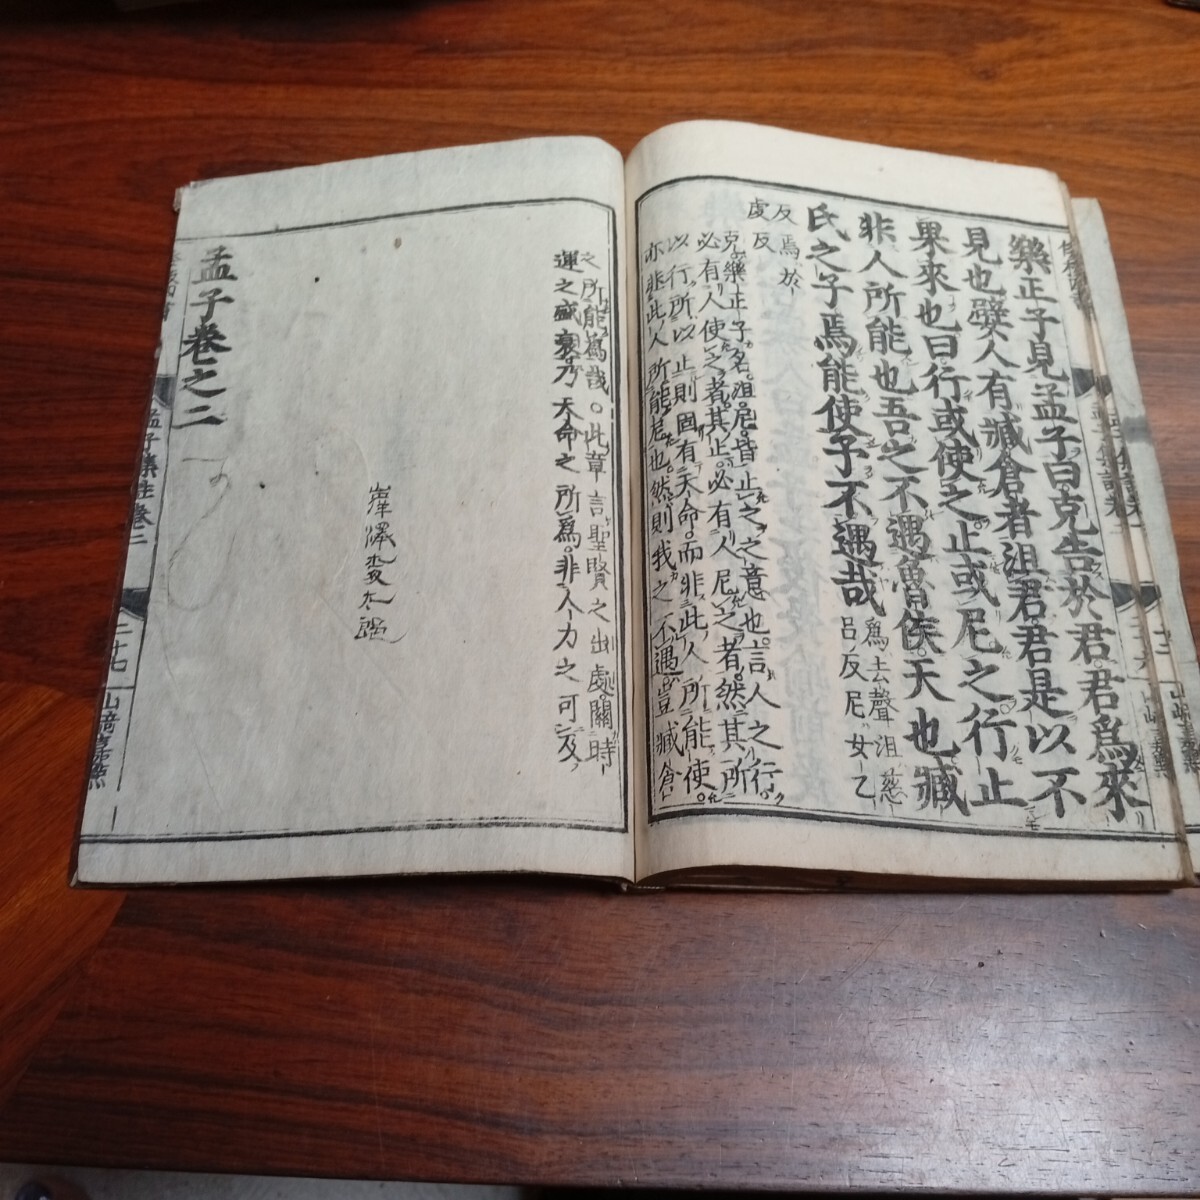 樂正子見孟子曰克告於君君爲來
見也嬖人有臧倉者沮君君是以不
果來也曰行或使之止或尼之行止
非人所能也吾之不遇魯侯天也臧
氏之子焉能使予不遇哉 爲去聲沮慈呂反尼女乙
反焉於虔反
克樂正子名沮尼皆止之之意也言人之行
必有人使之者其止必有人尼之者然其所
以行所以止則固有天命而非此人所能使
亦非此人所能尼也然則我之不遇豈臧倉
之所能爲哉。此章言聖賢之出處關時
運之盛衰乃天命之所爲非人力之可及
孟子卷之二
孟子集註卷二
二十七
山崎嘉點